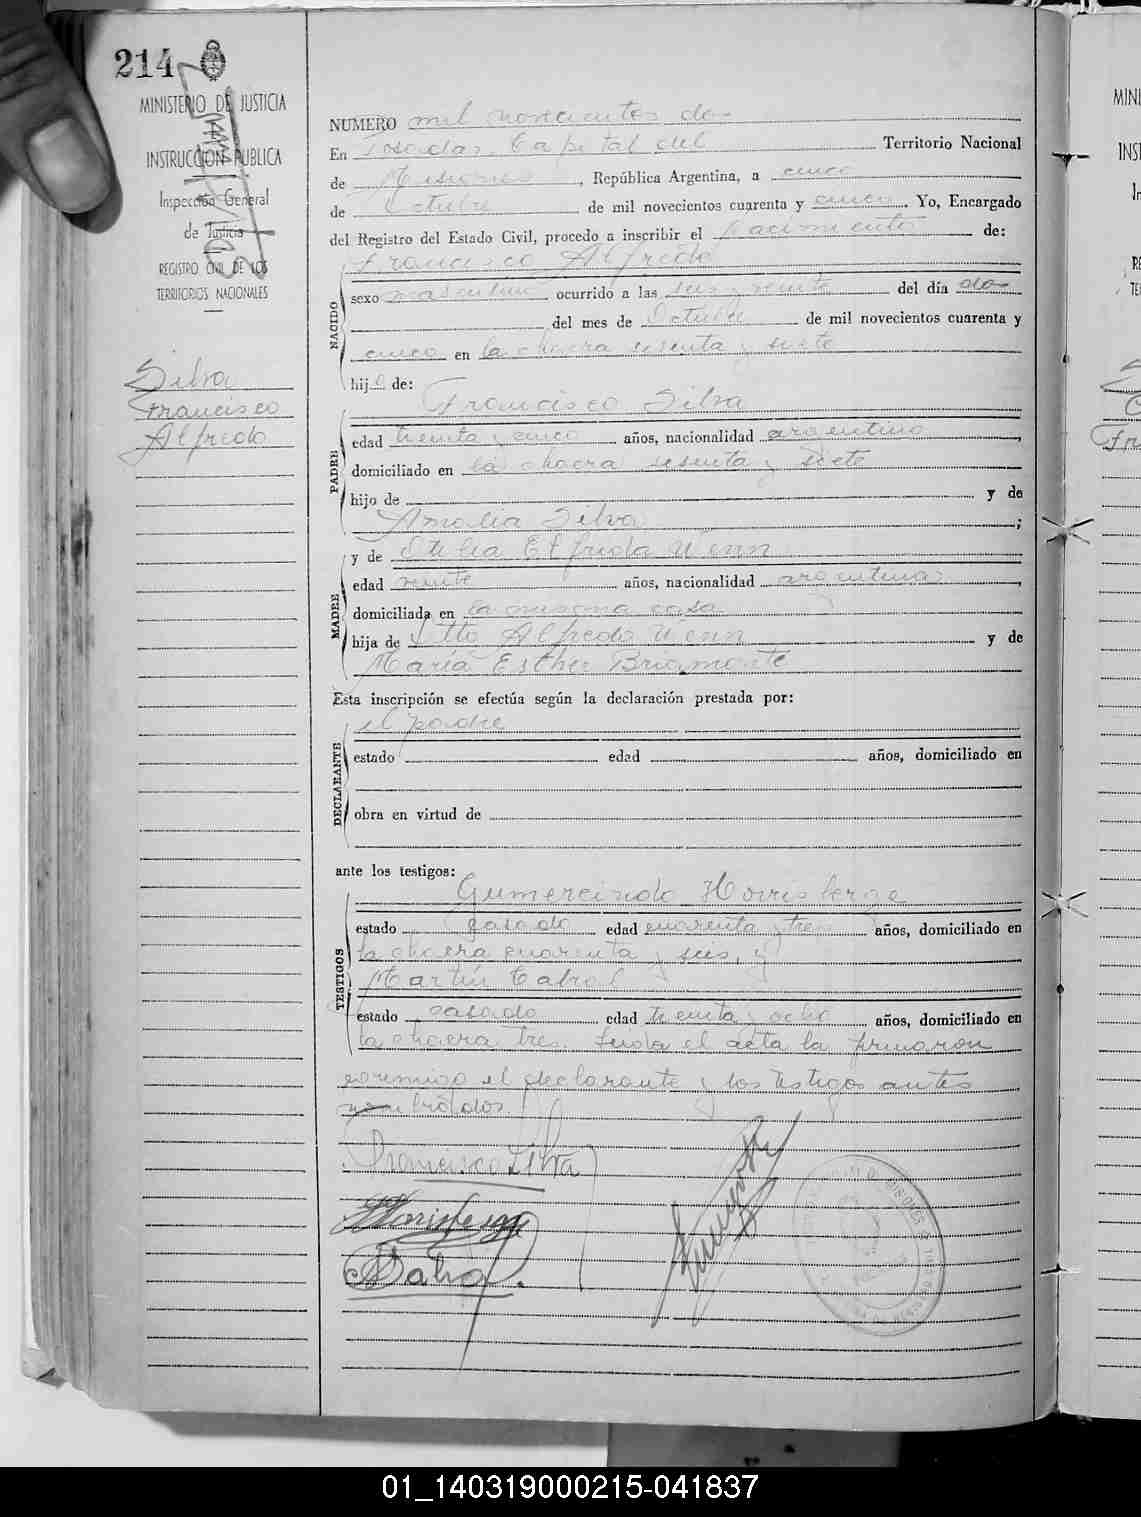 214
MINISTERIO DE JUSTICIA
INSTRUCCION PUBLICA
Inspección General
de Justicia
REGISTRO CIVIL DE LOS
TERRITORIOS NACIONALES
Silva
Francisco
Alfredo
NUMERO mil novecientos dos
En Posadas, Capital del Territorio Nacional
de Misiones, República Argentina, a cinco
de Octubre de mil novecientos cuarenta y cinco. Yo, Encargado
del Registro del Estado Civil, procedo a inscribir el nacimiento de:
Francisco Alfredo
NACIDO
sexo masculino ocurrido a las seis y veinte del día dos
del mes de Octubre de mil novecientos cuarenta y
cinco en la chacra sesenta y siete
hijo de:
Francisco Silva
PADRE
edad treinta y cinco años, nacionalidad argentino,
domiciliado en la chacra sesenta y siete
hijo de y de
Amalia Silva;
y de Otilia Elfrida Wenn
MADRE
edad veinte años, nacionalidad argentina,
domiciliada en la misma casa
hija de Otto Alfredo Wenn y de
María Esther Briamonte
Esta inscripción se efectúa según la declaración prestada por:
el padre
DECLARANTE
estado edad años, domiciliado en
obra en virtud de
ante los testigos:
Gumercindo Horrisberge
TESTIGOS
estado casado edad cuarenta y tres años, domiciliado en
la chacra cuarenta y seis, y
Martín Cabral
estado casado edad treinta y ocho años, domiciliado en
la chacra tres. Leida el acta la firmaron
conmigo el declarante y los testigos antes
nombrados.
Francisco Silva
MINI
INST
In
RE
TE
01_140319000215-041837